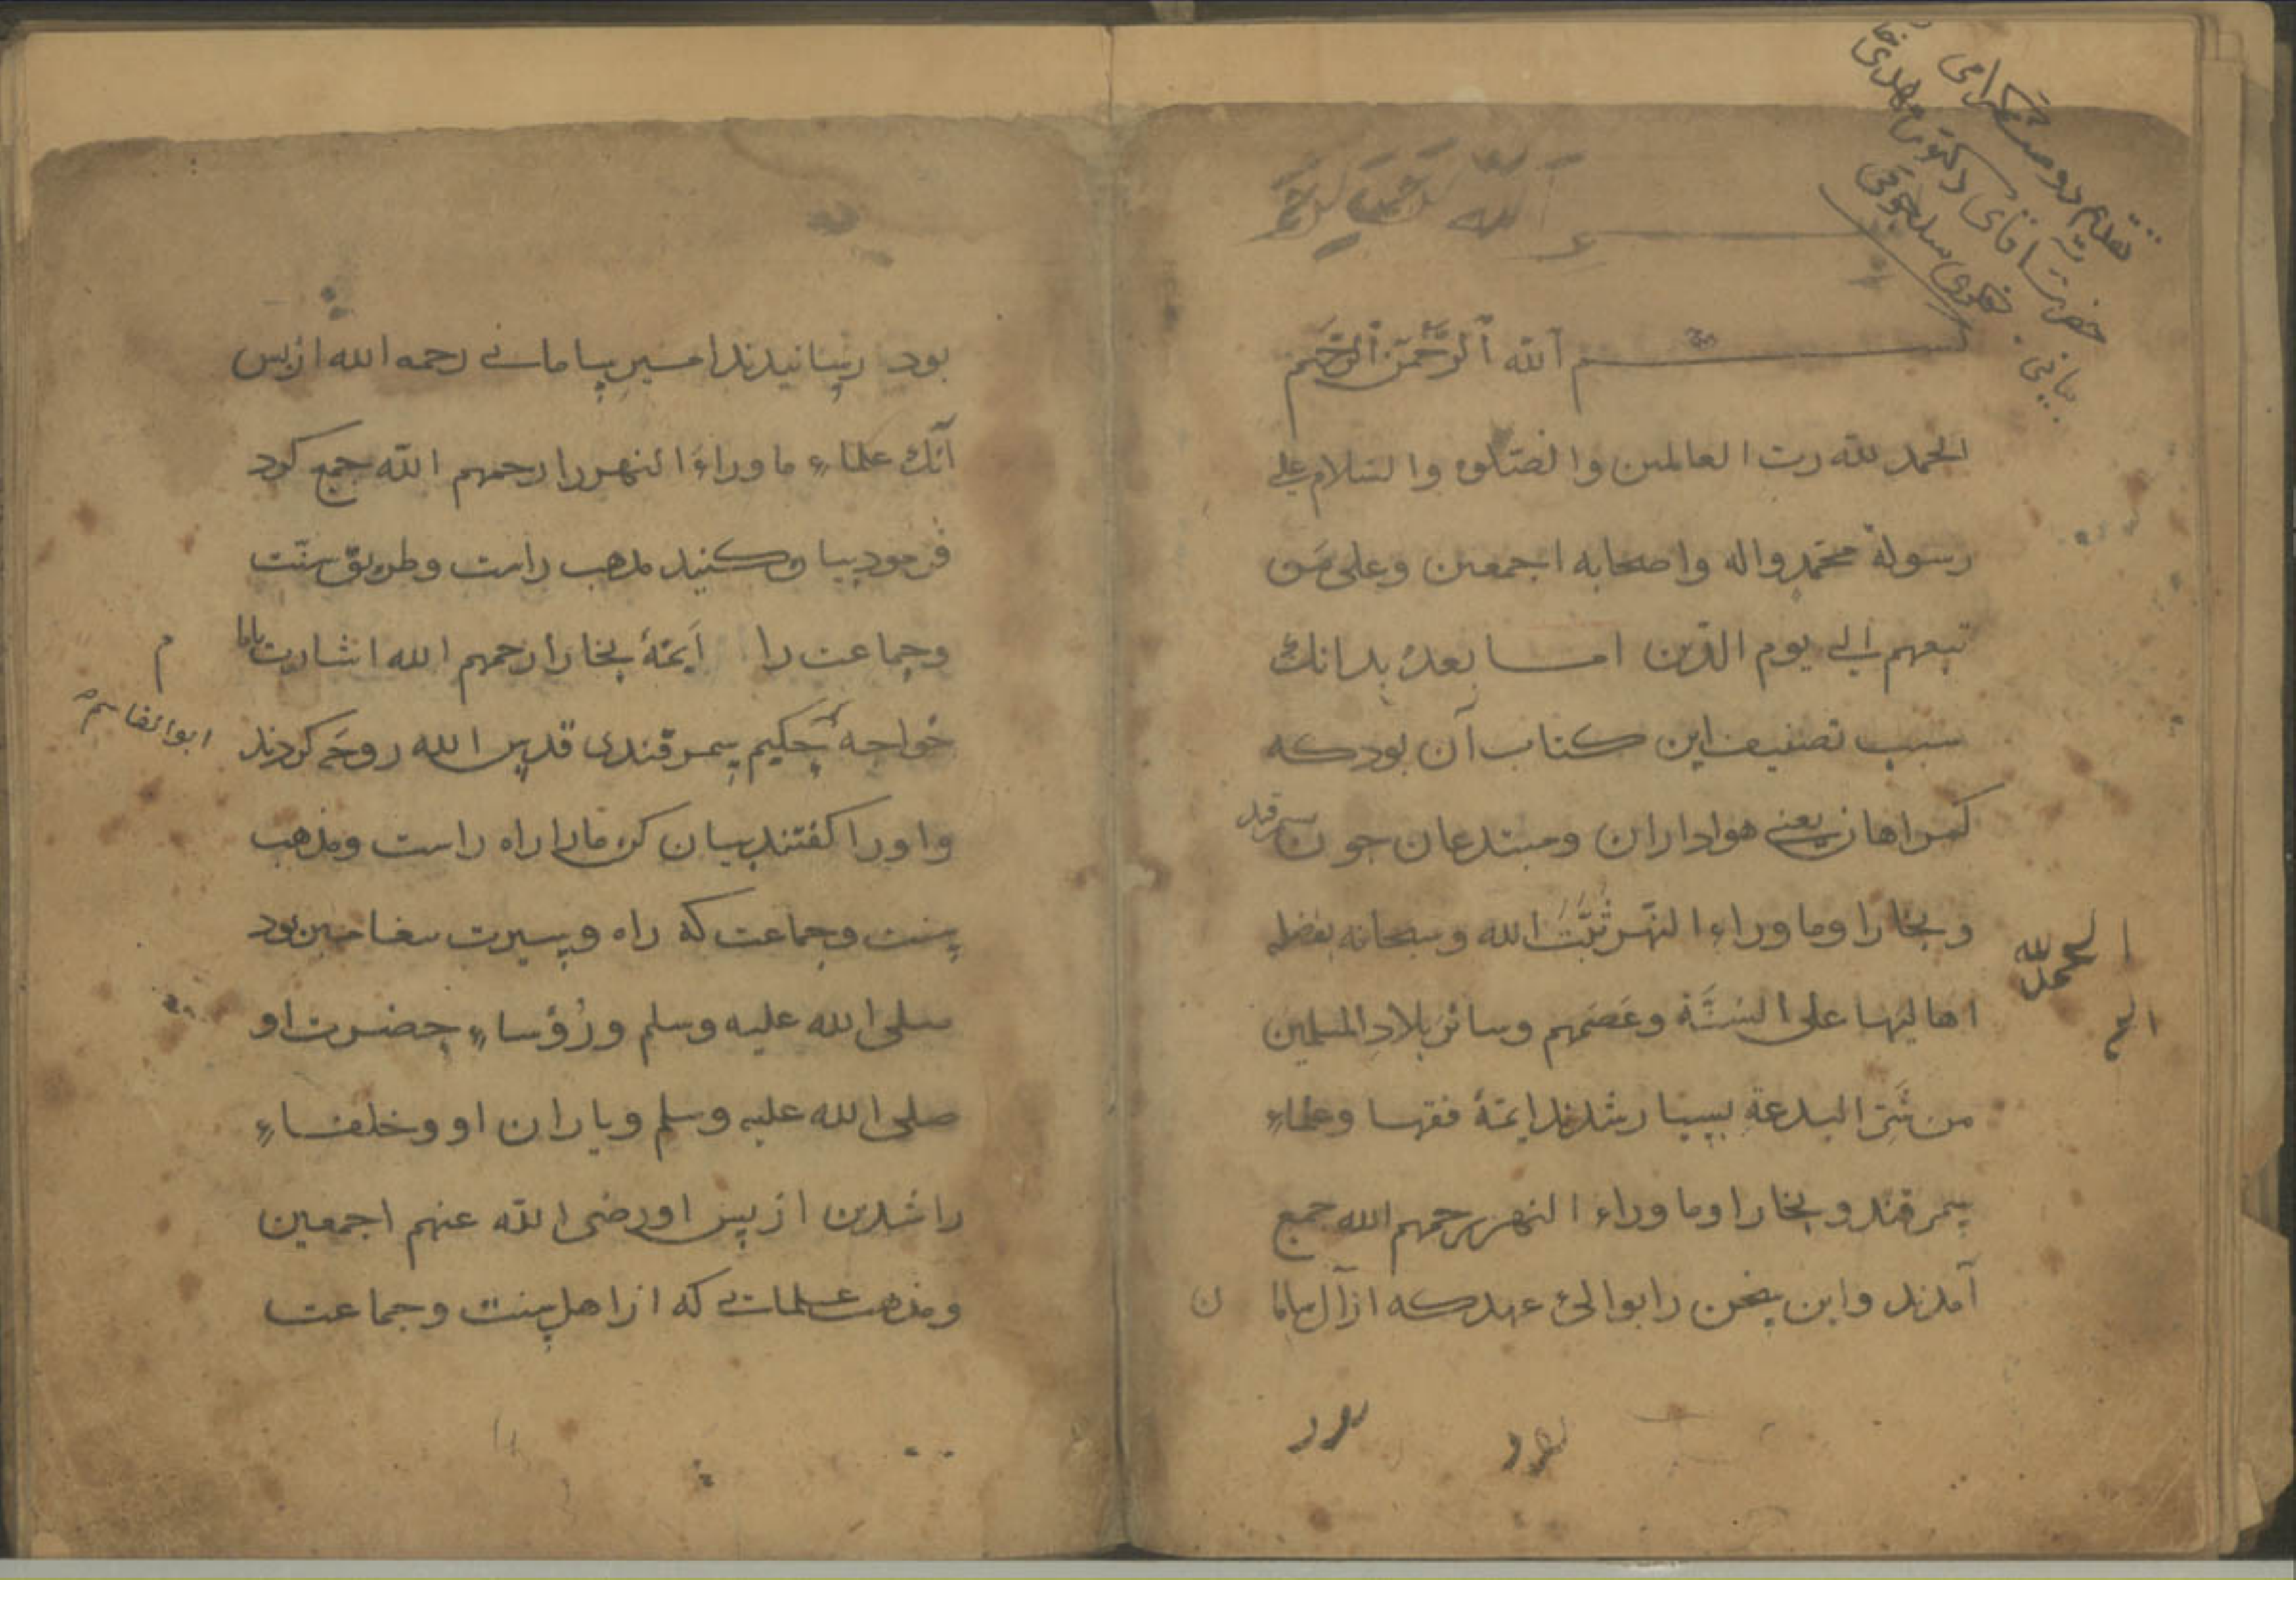 تقدیم دوست گرامی
حضرت آقای دکتر مهدی
بیانی. فکری سلجوقی
الله الرحمن الرحیم
بسم الله الرحمن الرحیم
الحمد لله رب العالمین والصلوة والسلام علی
رسوله محمد واله واصحابه اجمعین وعلی من
تبعهم الی یوم الدین اما بعد بدانك
سبب تصنیف این کتاب آن بود که
کمراهان یعنی هواداران ومبتدعان جون سمرقند
وبخارا وما وراء النهر ثبت الله وسبحانه بفضله
اهالیها علی السنة وعصمهم وسائر بلاد المسلمین
من شر البدعة بسیار شدند ایمۀ فقها وعلماء
سمرقند وبخارا وما وراء النهر رحمهم الله جمع
آمدند واین سخن را بوالیء عهد که از آل سامان
الحمد لله
الم
بود رسانیدند امیر سامانے رحمه الله از بس
آنك علماء ما وراء النهر را رحمهم الله جمع کرد
فرمود بیان کنید مذهب راست وطریق سنت
وجماعت را ایمۀ بخارا رحمهم الله اشارت باما
خواجه حکیم سمرقندی قدس الله روحه کردند
ابو القاسم
واورا کفتند بیان کن مارا راه راست ومذهب
سنت وجماعت که راه وسیرت بیغامبر بود
صلی الله علیه وسلم ورؤساء حضرت او
صلی الله علیه وسلم ویاران او وخلفاء
راشدین از پس او رضی الله عنهم اجمعین
ومذهب علمائے که از اهل سنت وجماعت